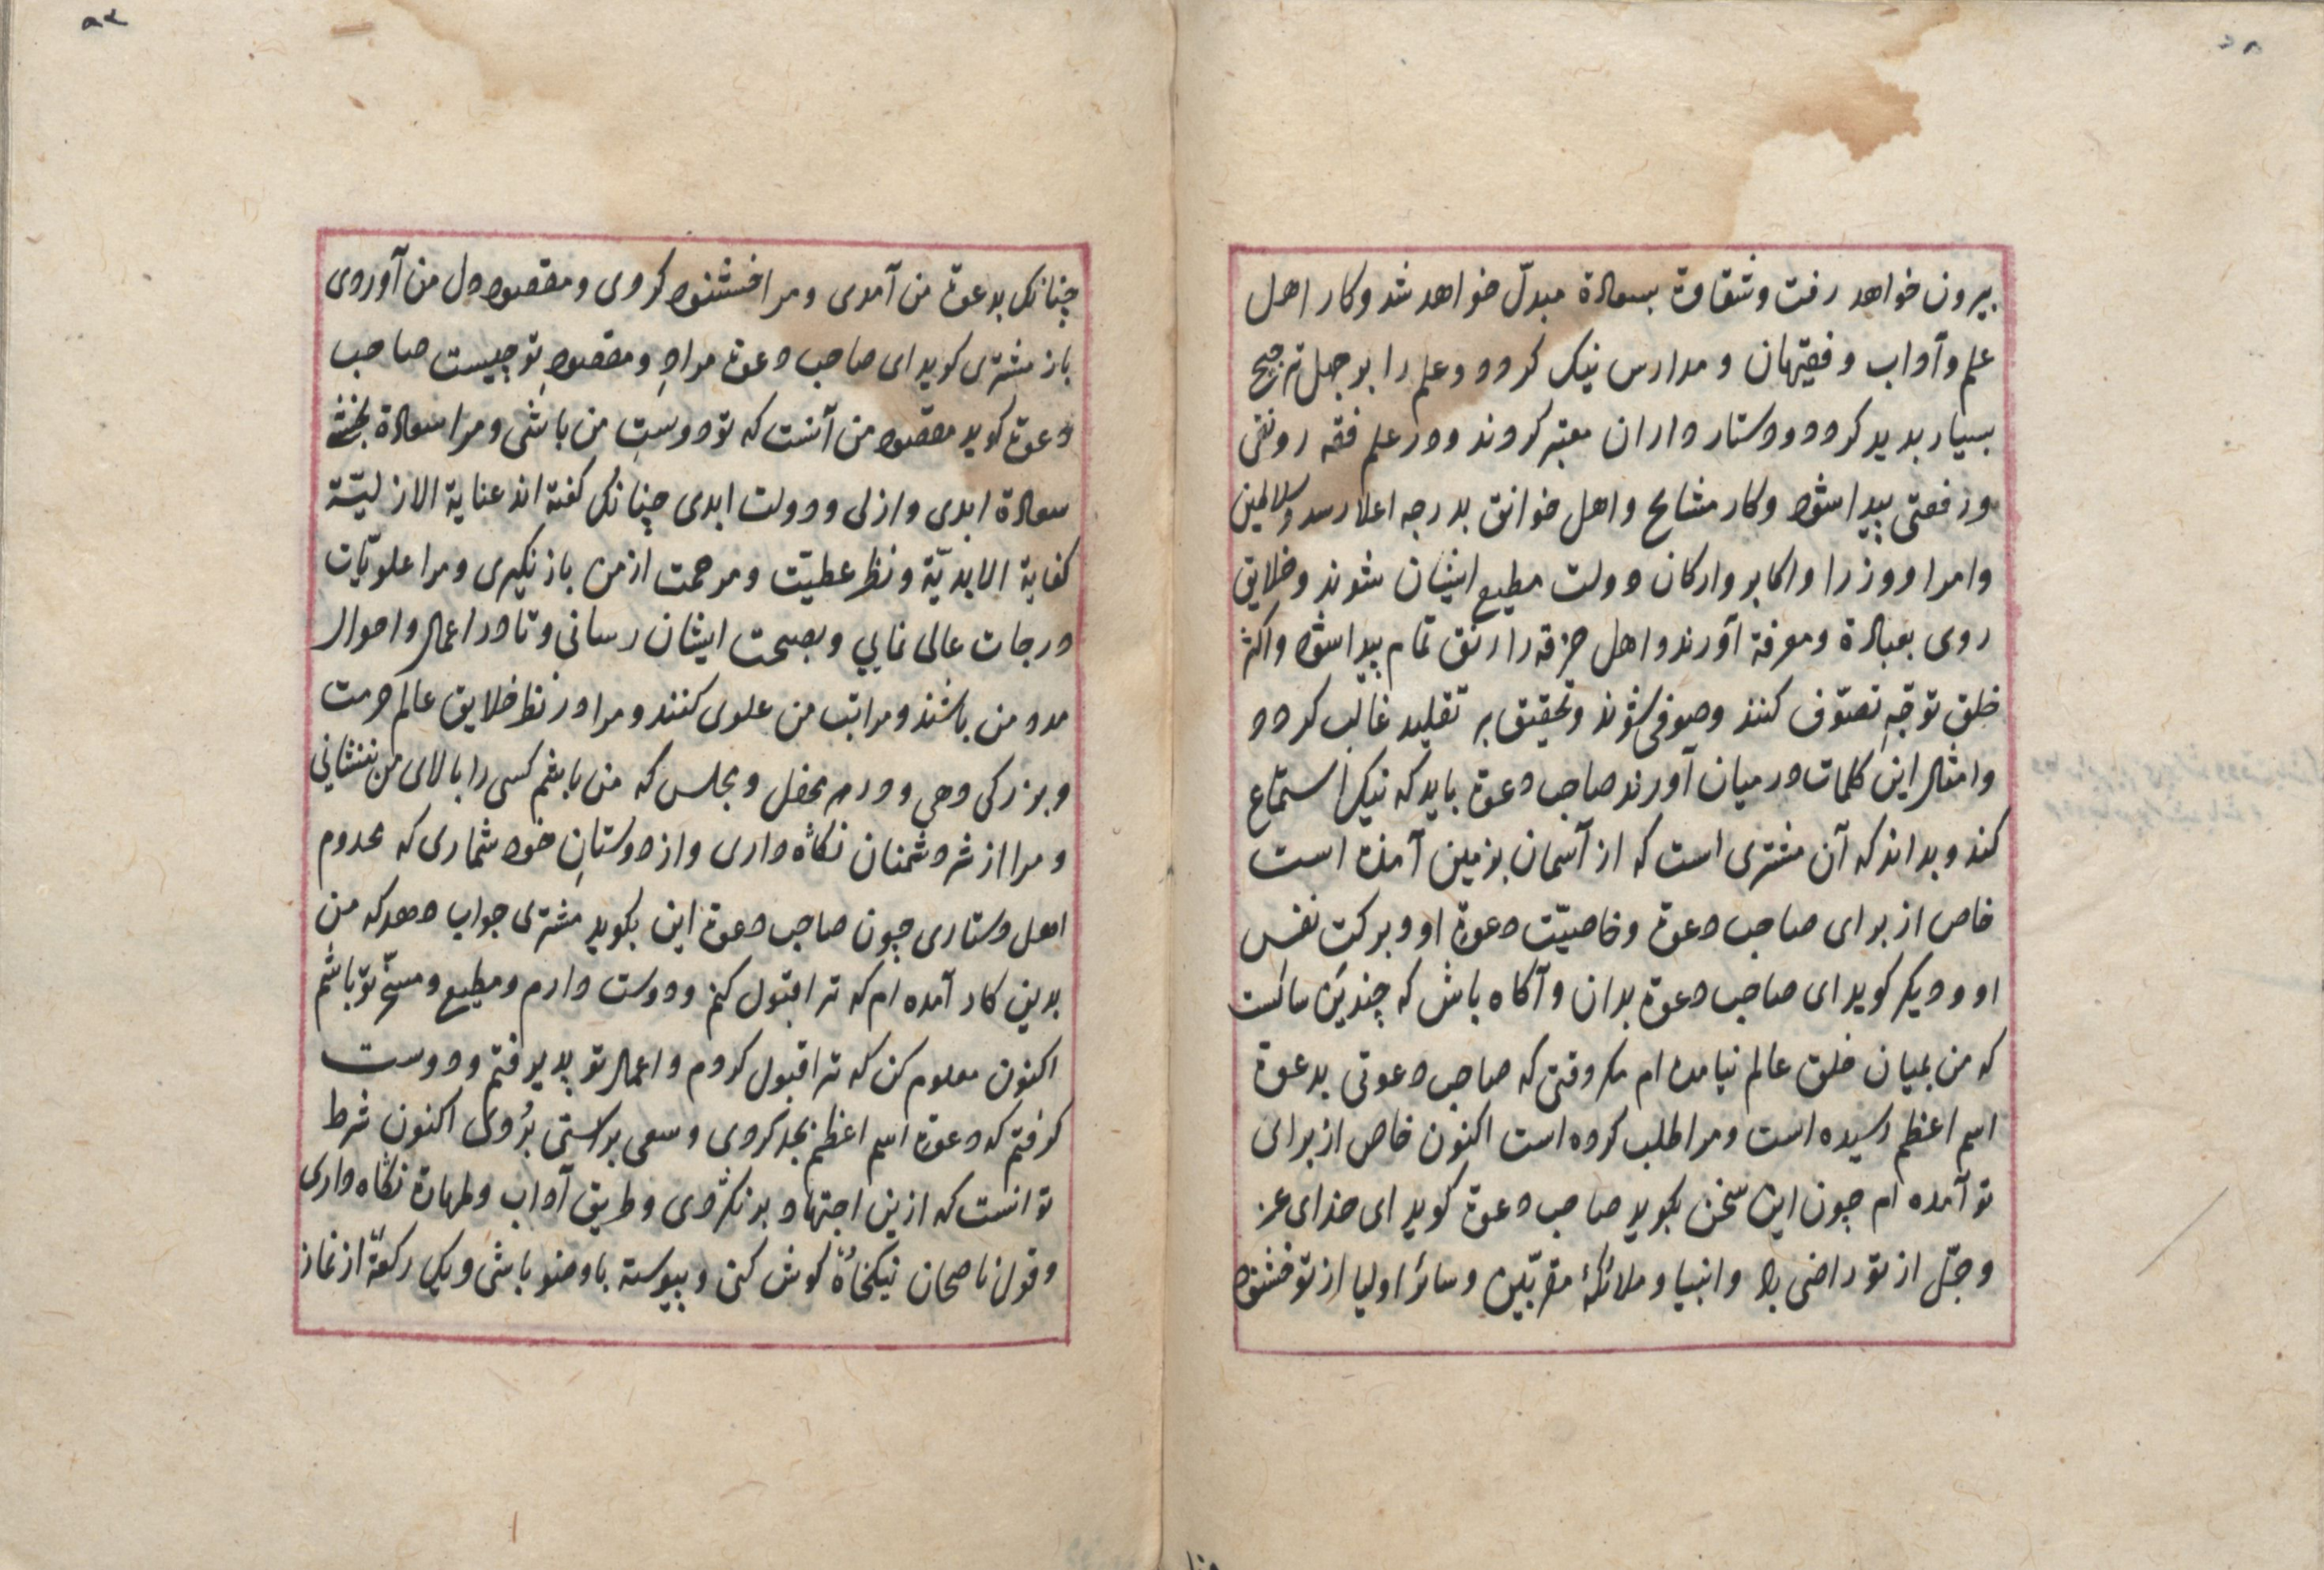 بیرون خواهد رفت و شقاوة بسعادة مبدّل خواهد شد و کار اهل
علم و آداب و فقیهان و مدارس نیک کردد و علم را بر جهل ترجیح
بسیار بدید کردد و دستار داران معتبر کردند و در علم فقه رونقی
و رفعتی بیدا شود و کار مشایخ و اهل خوانق بدرجه اعلا رسد و سلاطین
و امرا و وزرا و اکابر و ارکان دولت مطیع ایشان شوند و خلایق
روی بعبادة و معرفة آورند و اهل خرقه را رتق تمام بیدا شود و اکثر
خلق توجّهِ تصوّف کنند و صوفی شوند و تحقیق بر تقلید غالب کردد
و امثال این کلمات در میان آورند صاحب دعوة باید که نیک استماع
کند و بداند که آن مشتری است که از آسمان بزمین آمده است
خاص از برای صاحب دعوة و خاصیّت دعوة او و برکت نفس
او و دیکر کوید ای صاحب دعوة بدان و آکاه باش که چندین سالست
که من بمیان خلق عالم نیامده ام مکر وقتی که صاحب دعوتی بدعوة
اسم اعظم رسیده است و مرا طلب کرده است اکنون خاص از برای
تو آمده ام چون این سخن بکوید صاحب دعوة کوید ای خدای عز
و جّل از تو راضی باد و انبیا و ملائکهٔ مقرّبین و سائر اولیا از تو خشنود
چنانک بدعوة من آمدی و مرا خشنود کردی و مقصود دل من آوردی
باز مشتری کوید ای صاحب دعوة مرادِ و مقصودِ تو چیست صاحب
دعوة کوید مقصود من آنست که تو دوستِ من باشی و مرا سعادة بخشی
سعادة ابدی و ازلی و دولت ابدی چنانک کفته اند عنایة الازلیّة
کفایة الابدیّة و نظر عطیّت و مرحمت از من باز نکیری و مرا علویّات
درجات عالی نمایی و بصحبت ایشان رسانی و تا در اعمال و احوال
مدد من باشند و مراتب من علوی کنند و مرا در نظر خلایق عالم حرمت
و بزرکی دهی و در هر محفل و مجلس که من باشم کسی را بالای من ننشانی
و مرا از شر دشمنان نکاه داری و از دوستانِ خود شماری که مخدوم
اهل دستاری چون صاحب دعوة این بکوید مشتری جواب دهد که من
بدین کار آمده ام که ترا قبول کنم و دوست دارم و مطیع و مسخّر تو باشم
اکنون معلوم کن که ترا قبول کردم و اعمال تو پدیرفتم و دوست
کرفتم که دعوة اسم اعظم بجد کردی و سعی براستی بُردی اکنون شرط
تو انست که ازین اجتهاد بر نکردی و طریق آداب و طهارة نکاه داری
و قول ناصحان نیکخواه کوش کنی و بیوسته با وضو باشی و یک رکعة از نماز